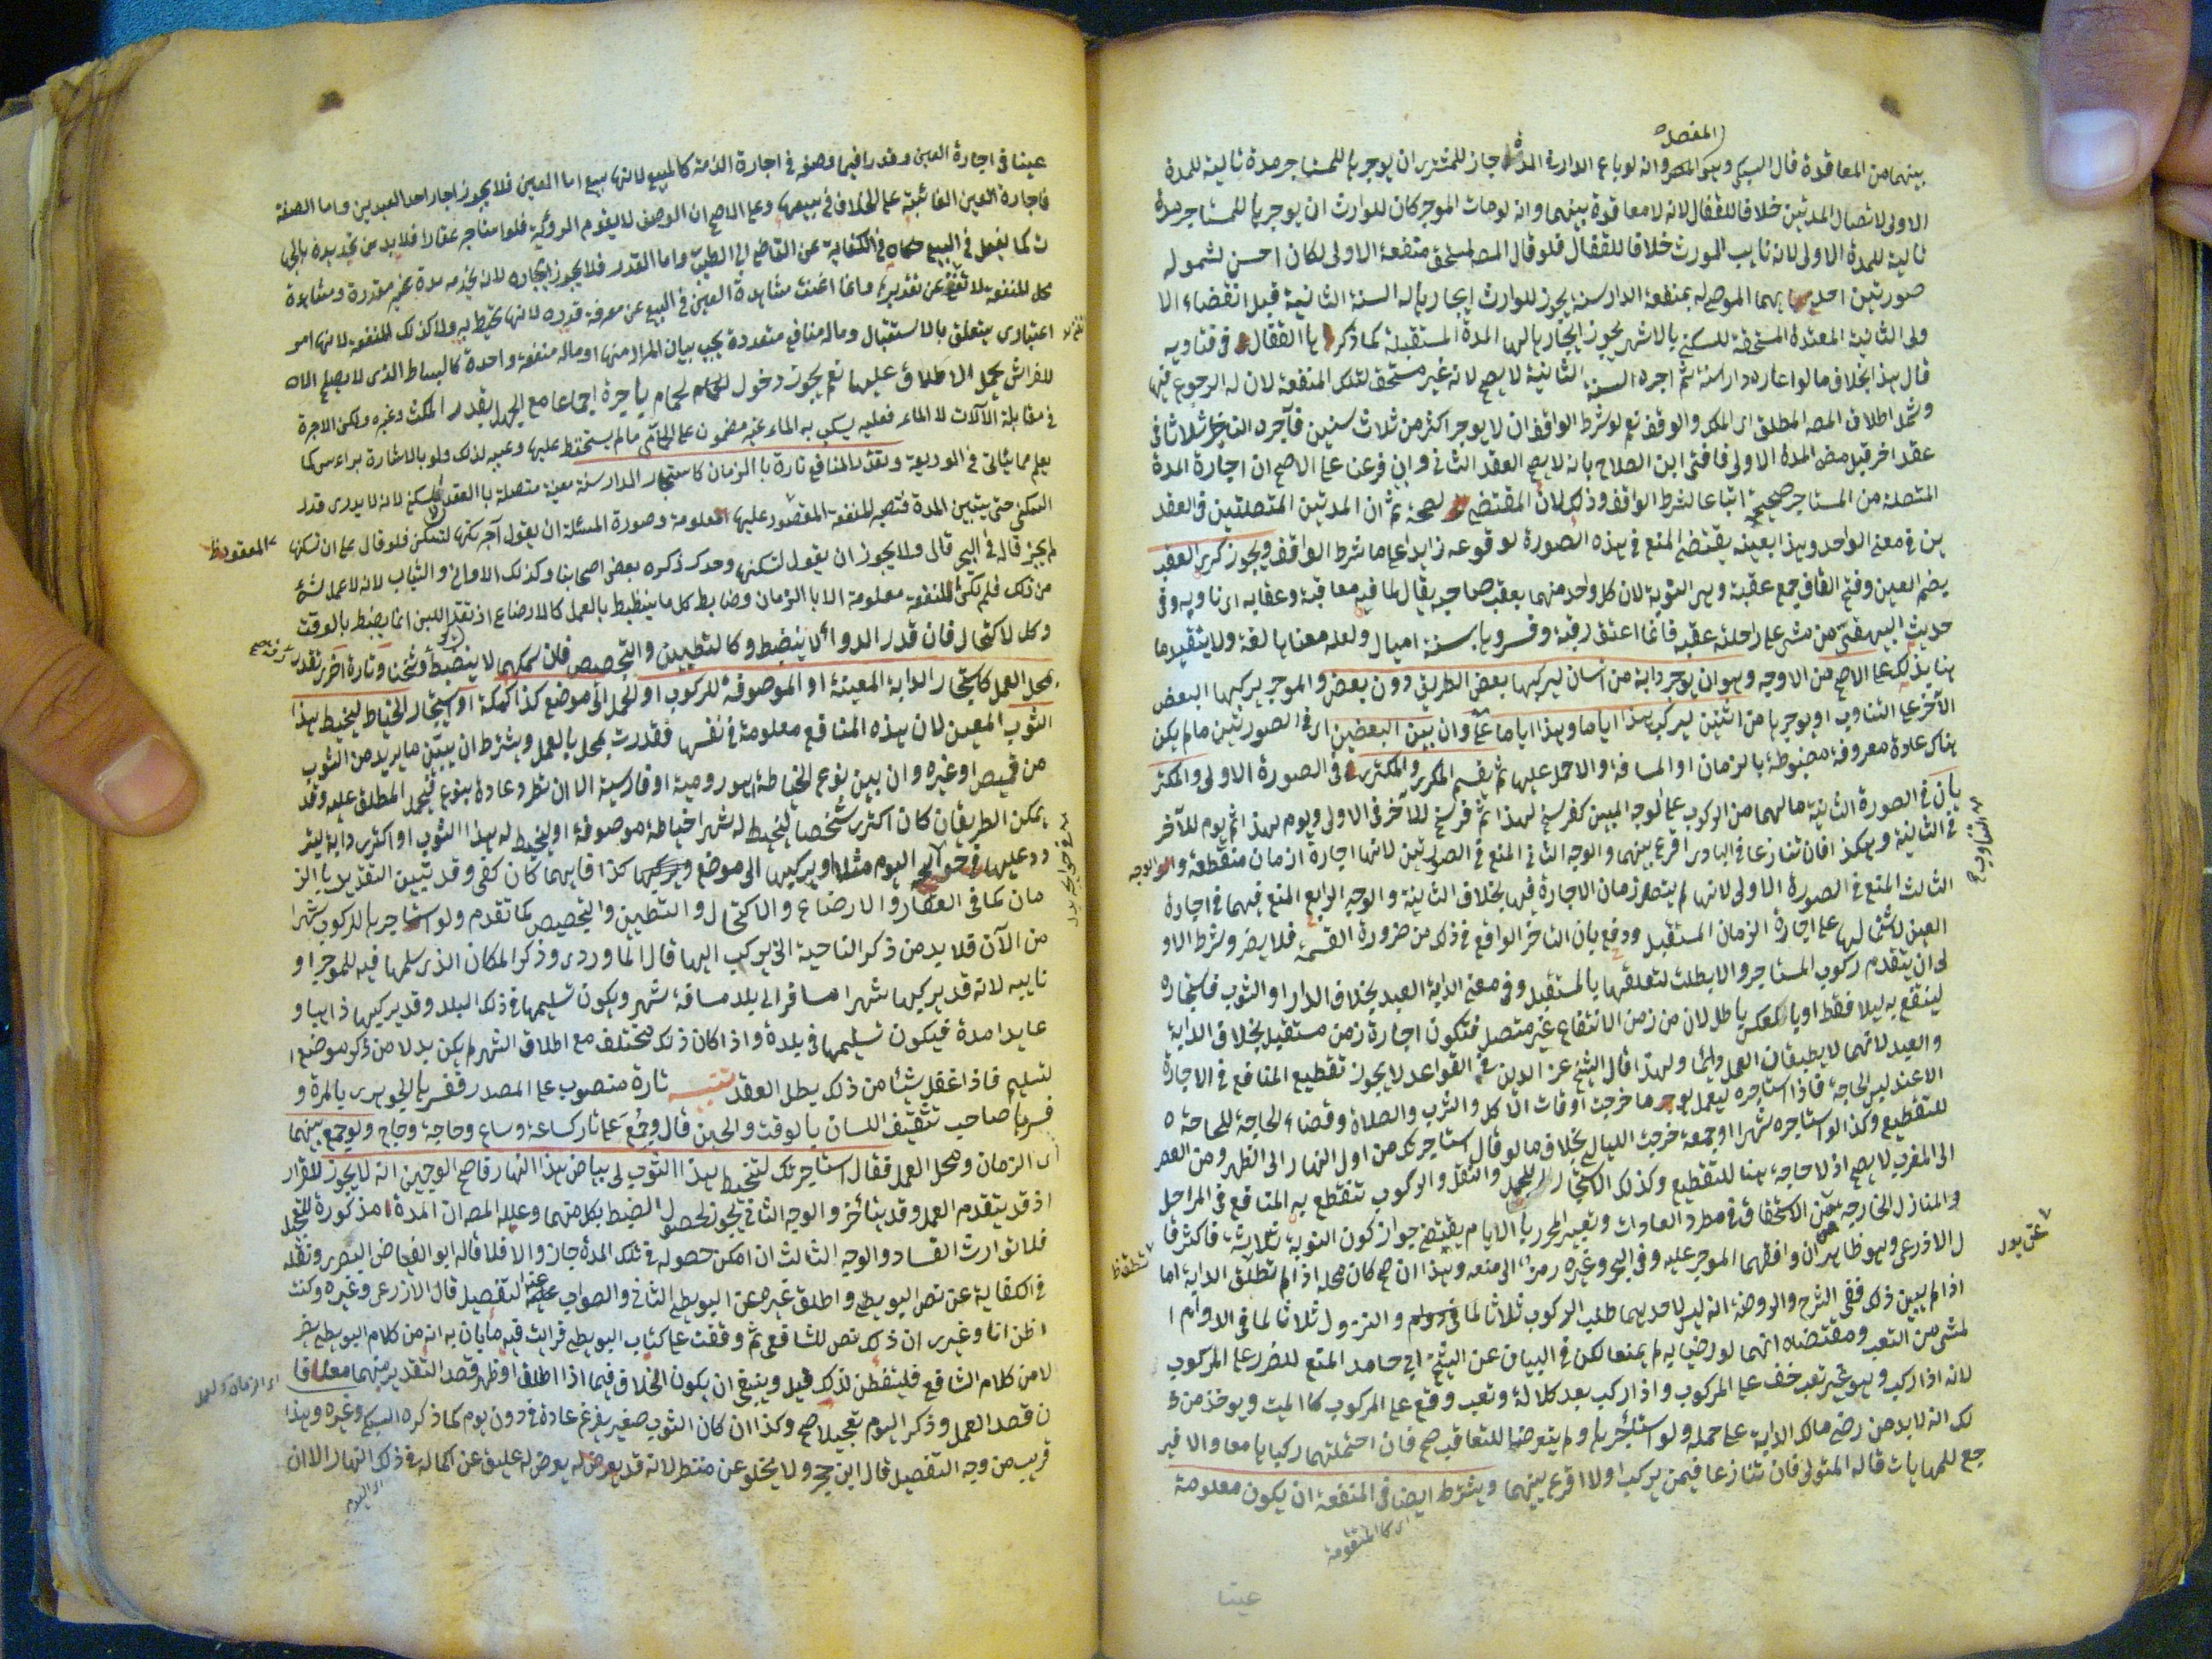 المفصل
بينهما من المعاقدة قال السبكي وهو وانه لو باع الدار في المدة جاز للمشتري ان يوجرها للمستاجر مدة ثالية للمدة
الاولى لاتصال المدتين خلافا للقفال لانه لا معاقدة بينهما وانه لو مات الموجر كان للوارث ان يوجرها للمستاجر مدة
ثالية للمدة الاولى لانه نايب المورث خلافا للقفال فلو قال المصه لمستحق منفعة الاولى لكان احسن لشموله
صورتين احديهما الموصى له بمنفعة الدار سنة يجوز للوارث ايجارها له السنة الثانية قبل انقضاء الا
ولى الثانية المعتدة المستحقة للسكنى بالاشهر يجوز ايجارها لها المدة المستقبلة كما ذكرها القفال في فتاويه
قال هذا بخلاف ما لو اعاره دارا سنة ثم اجره السنة الثانية لا يصح لانه غير مستحق لتلك المنفعة لان له الرجوع فيها
وشمل اطلاق المصه المطلق اي الملك والوقف نعم لو شرط الواقف ان لا يوجر اكثر من ثلاث سنين فآجره الناظر ثلاثا في
عقد اخر قبل مضي المدة الاولى فافتى ابن الصلاح بانه لا يصح العقد الثاني وان فرعنا على الاصح ان اجارة المدة
المتصلة من المستاجر صحيحة اتباعا لشرط الواقف وذلك لان المقتضي لصحة ثم ان المدتين المتصلتين في العقد
ين في معنى الواحد وهذا بعينه يقتضي المنع في هذه الصورة لوقوعه زايدا على ما شرط الواقف ويجوز كرى العقب
بضم العين وفتح القاف جمع عقبة وهي النوبة لان كل واحد منهما يعقب صاحبه يقال لها فيه معاقبة وعقابه اي ناوبه وفي
حديث البيهقي من مشى على راحلته عقبه فانما اعتق رقبة وفسروها بستة اميال ولعله معناها لغة ولا يتقيد ما
هنا بذلك على الاصح من الاوجه وهو ان يوجر دابة من انسان ليركبها بعض الطريق دون بعض والموجر يركبها البعض
الآخر على التناوب او يوجرها من اثنين ليركب هذا اياما وهذا اياما وان بين البعضين اي في الصورتين ما لم يكن
هناك عادة معروفة مضبوطة بالزمان او المسافة والاحمل عليها ثم يقسم المكري والمكتري في الصورة الاولى والمكتر
يان في الصورة الثانية ما لهما من الركوب على الوجه المبين كفرسخ لهذا ثم فرسخ للآخر في الاولى ويوم لهذا ثم يوم للآخر
في الثانية وهكذا فان تنازعا في البادي اقرع بينهما والوجه الثاني المنع في الصورتين لانها اجارة ازمان منقطعة والوجه
الثالث المنع في الصورة الاولى لانها لم يتصل زمان الاجارة فيها بخلاف الثانية والوجه الرابع المنع فيهما في اجارة
العين لاشتمالها على اجارة الزمان المستقبل ودفع بان التاخر الواقع في ذلك من ضرورة القسمة فلا يضر وشرط الاو
لى ان يتقدم ركوب المستاجر والا بطلت لتعلقها بالمستقبل وفي معنى الدابة العبد بخلاف الدار او الثوب فاستيجاره
لينتفع به ليلا فقط او بالعكس باطل لان من زمن الانتفاع غير متصل فتكون اجارة زمن مستقبل بخلاف الدابة
والعبد لانهما لا يطيقان العمل دائما ولهذا قال الشيخ عز الدين في القواعد لا يجوز تقطيع المنافع في الاجارة
الا عند ليس الحاجة فاذا استاجره ليعمل يوما خرجت اوقات الاكل والشرب والصلاة وقضاء الحاجة للحاجة ه
للتقطيع وكذا لو استاجره شهرا او جمعة خرجت الليالي بخلاف ما لو قال استاجرتك من اول النهار الى الظهر ومن العصر
الى المغرب لا يصح اذ لا حاجة هنا للتقطيع وكذلك الاستيجار للحمل والنقل والركوب تنقطع به المنافع في المراحل
والمنازل الخارجة عن الاستحقاق في مطرد العادات وتعبير المحرر بالايام يقتضي جواز كون النوبة ثلاثة فاكثر قا
ل الاذرعي وهو ظاهر ان وافقهما الموجر عليه وفي البحر وغيره رمز الى منعه وهذا ان صح كان محله اذا لم تطق الدابة اما
اذا لم يبين ذلك ففي الشرح والروضة انه ليس لاحدهما طلب الركوب ثلاثا والنزول ثلاثا لما في الدوام ا
لمشي من التعب ومقتضاه انهما لو رضيا به لم يمنعا لكن في البيان عن الشيخ ابي حامد المنع للضرر على المركوب
لانه اذا ركب وهو غير تعب خف على المركوب واذا ركب بعد كلاله وتعب وقع على المركوب كالميت ويوخذ من ذ
لك انه لا بد من رضى مالك الدابة على حمله ولو استاجرها ولم يتعرضا للتعاقب صح فان احتملتهما ركباها معا والا فير
جع للمهايات قاله المتولي فان تنازعا فيمن يركب اولا اقرع بينهما ويشترط ايضا في المنفعة ان يكون معلومة
اي كالمتقومة
عينا
عينا في اجارة العين وقدرا فيما وصفه في اجارة الذمة كالمبيع لانها بيع اما العين فلا يجوز ايجار احد العبدين واما الصفة
فاجارة العين الغائبة على الخلاف في بيعها وعلى الاصح ان الوصف لا يقوم الروية فلو استاجر عقارا فلا بد من تحديده بالجها
ت كما يفعل في البيع حكاه في الكفاية عن القاضي ابي الطيب واما القدر فلا يجوز ايجاره لان يخدمه مدة غير مقدرة ومشاهدة
محل المنفعة لا تغني عن تقديرها وانما اغنت مشاهدة العين في البيع عن معرفة قدره لانها تحيط به ولا كذلك المنفعة لانها امر
اعتباري يتعلق بالاستقبال وماله منافع متعددة يجب بيان المراد منها او ماله منفعة واحدة كالبساط الذي لا يصلح الا ه
للفراش يحمل الاطلاق عليها نعم يجوز دخول الحمام باجرة اجماعا مع الجهل بقدر المكث وغيره ولكن الاجرة
في مقابلة الآلات لا الماء فعليه يسكب به الماء غير مضمون على الحامي ما لم يستحفظ عليها وعيبه لذلك ولو بالاشارة براءسه كما
يعلم مما ياتي في الوديعة وتقدر المنافع تارة بالزمان كاستيجار الدار سنة معينة متصلة بالعقد للسكنى لانه لا يدري قدر
السكنى حتى يتبين المدة فتصير المنفعة المعقود عليها معلومة وصورة المسئلة ان يقول آجرتكها لتسكن فلو قال على ان تسكنها
لم يجز قاله في البحر قال ولا يجوز ان يقول لتسكنها وحدك ذكره بعض اصحابنا وكذلك الاواني والثياب لانه لا عمل لشئ
من ذلك فلم تكن المنفعة معلومة الا بالزمان وضابط كل ما ينظبط بالعمل كالارضاع اذ تقدر اللبن انما يضبط بالوقت
وكل لاكتحال فان قدر الدواء لا ينضبط وكالتطيين والتجصيص فان سمكهما لا ينضبط وتخنا وتارة اخرى تقدر
بمحل العمل كاستيجار الدابة المعينة او الموصوفة للركوب او الحمل الى موضع كذا كمكة او استيجار الخياط ليخيط هذا
الثوب المعين لان هذه المنافع معلومة في نفسها فقدرت بمحل بالعمل ويشترط ان يبين ما يريد من الثوب
من قميص او غيره وان بين نوع الخياطة اهي رومية او فارسية الا ان تطرد عادة بنوع فيحمل المطلق عليه وقد
يمكن الطريقان كان اكترى شخصا ليخيط له شهرا خياطة موصوفة او ليخيط له هذا الثوب او اكترى دابة ليتر
دد عليها في حوايجه اليوم مثلا او يركبها الى موضع كذا فايهما كان كفى وقد تبين التقدير بالز
مان كما في العقار والارضاع والاكتحال والتطيين والتجصيص كما تقدم ولو استاجرها للركوب شهرا
من الآن فلا بد من ذكر الناحية التي يركب اليها قال الماوردي وذكر المكان الذي يسلمها فيه للموجر او
نايبه لانه قد يركبها شهرا مسافرا الى بلد مسافة شهر ويكون تسليمها في ذلك البلد وقد يركبها ذاهبا و
عايدا مدة فيكون تسليمها في بلدة واذا كان ذلك مختلف مع اطلاق الشهر لم يكن بد لا من ذكر موضع ا
لتسليم فاذا اغفل شيئا من ذلك بطل العقد تنبيه تارة منصوب على المصدر فسرها الجوهري بالمرة و
فسرها صاحب تثقيف اللسان بالوقت والحين قال وجمع على تار كساعة وساع وحاجة وحاج ولو جمع بينهما
اي الزمان ومحل العمل فقال استاجرتك لتخيط هذا الثوب لي بياض هذا النهار فاصح الوجهين انه لا يجوز للغرار
اذ قد يتقدم العمل وقد يتاخر والوجه الثاني يجوز لحصول الضبط بكل منهما وعلله المصه ان المدة مذكورة للتعجيل
فلا تورث الفساد والوجه الثالث ان امكن حصوله في تلك المدة جاز والا فلا قاله ابو الفياض البصري ونقله
في الكفاية عن نص البويطي واطلق غيره عن البويطي الثاني والصواب عنه التفصيل قال الاذرعي وغيره وكنت
اظن انا وغيري ان ذلك نص للشافعي ثم وقفت على كتاب البويطي فرايت فيه ما بان به انه من كلام البويطي
لا من كلام الشافعي فليتفطن لذلك قيل وينبغي ان يكون الخلاف فيما اذا اطلق او ظهر قصد التقدير بهما معا فا
ن قصد العمل وذكر اليوم تعجيلا صح وكذا ان كان الثوب صغيرا يفرغ عادة في دون يوم كما ذكره السبكي وغيره وهذا
قريب من وجه التفصيل قال ابن حجر ولا يخلو عن منظر لانه قد يعرض له عايق عن اكماله في ذلك النهار الا ان